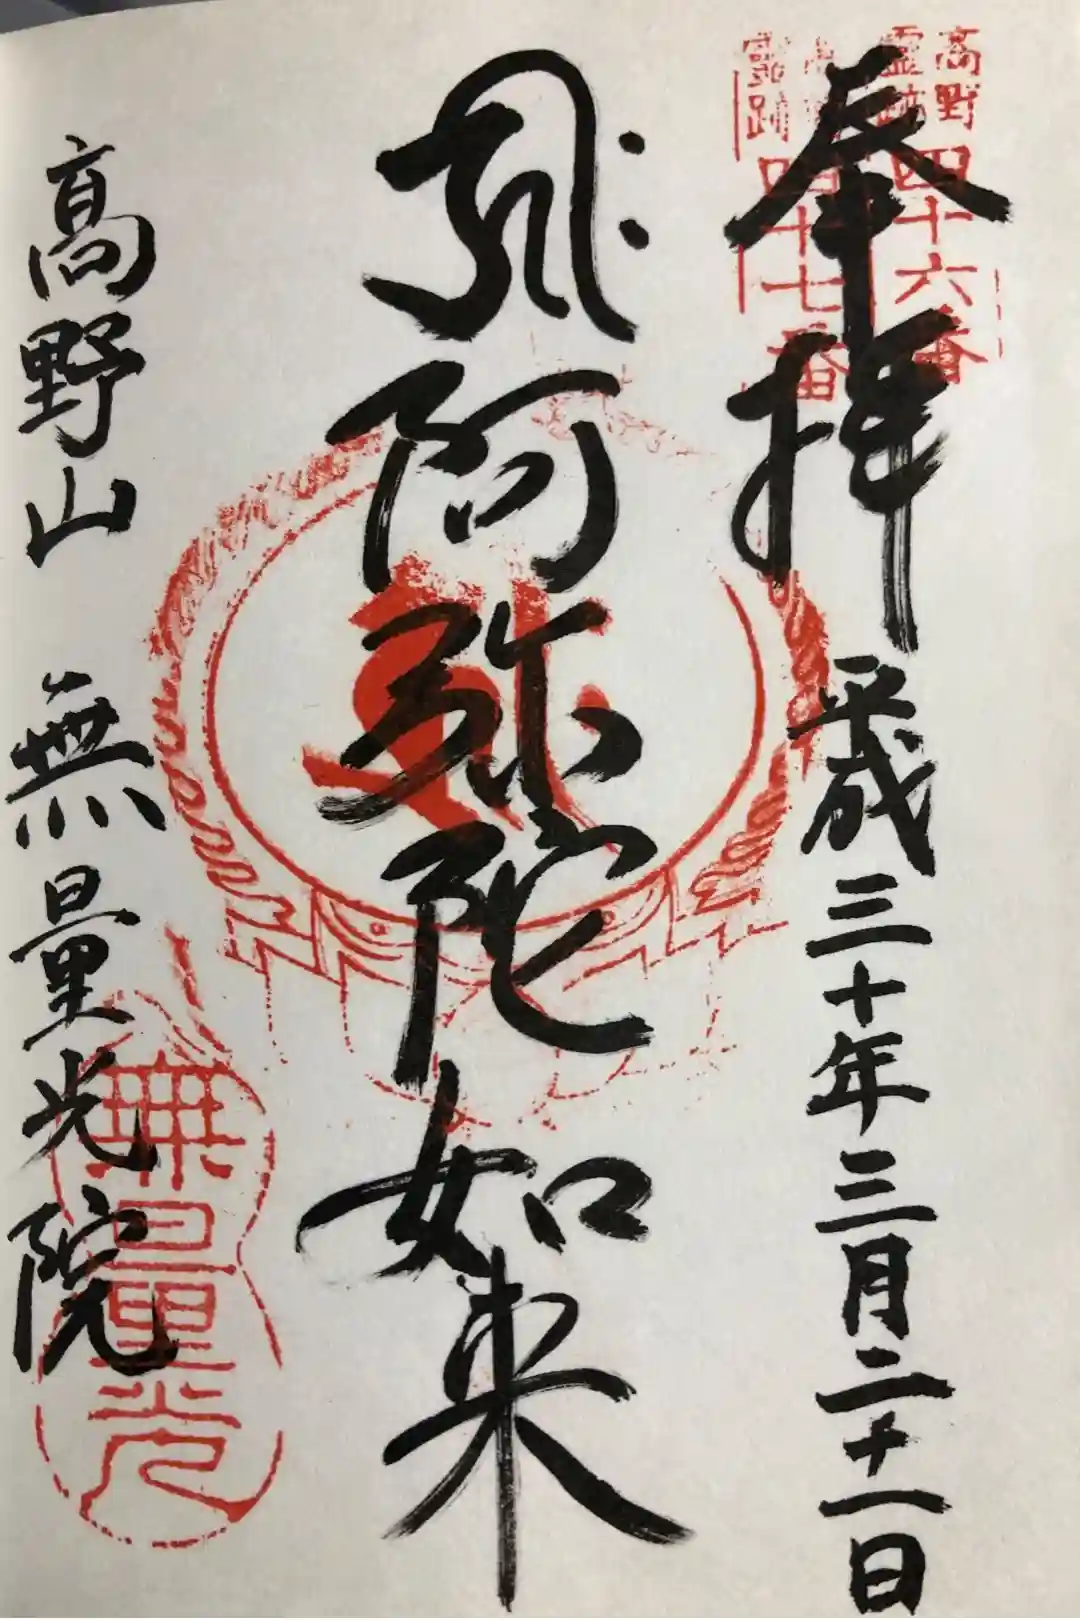 奉拝 平成三十年三月二十一日
高野
霊跡
四十六番
霊跡
四十七番
阿弥陀如来
高野山 無量光院
無量光